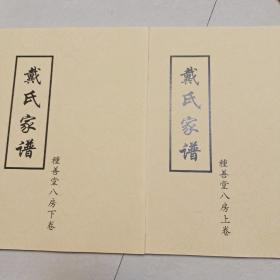 戴氏家谱
種善堂八房下卷
戴氏家谱
種善堂八房上卷